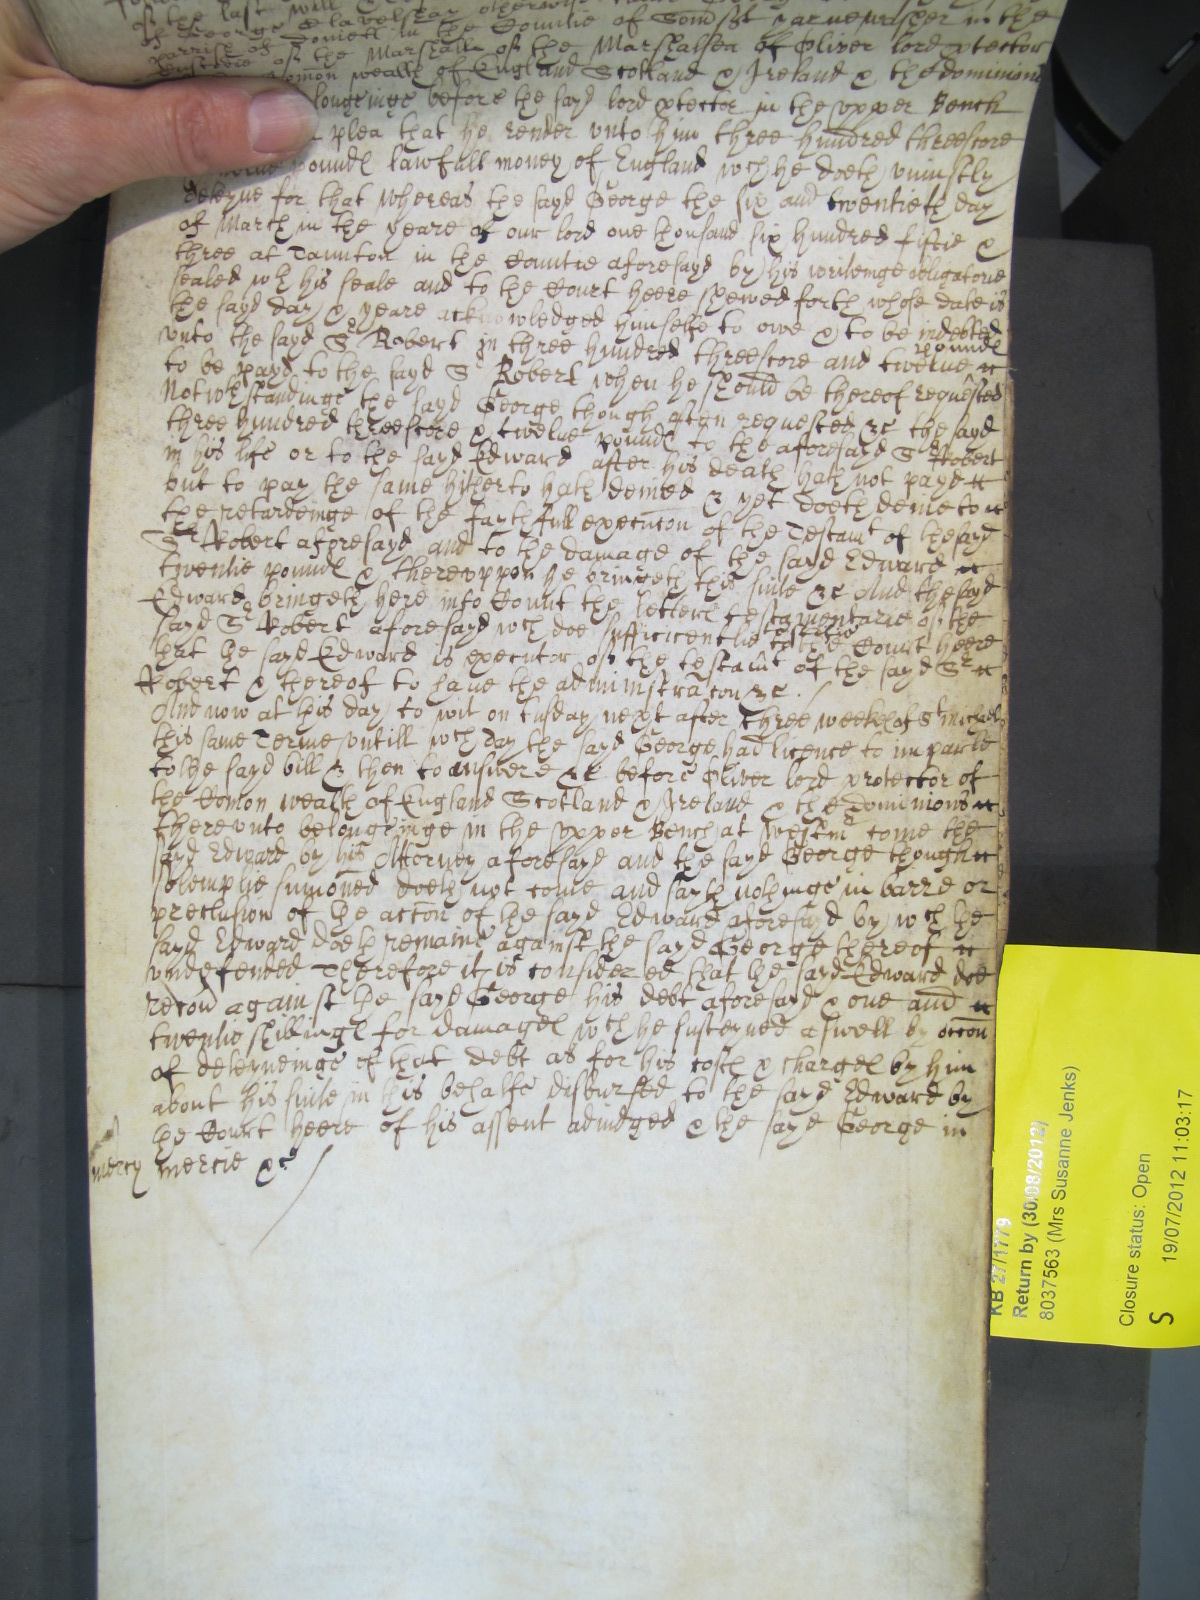 of the last will
of George Slavelson otherwise
parrish of in the Countie of Somst yarnewasher in the
Custodie of the Marshall of the Marshalsea of Oliver lord ptector
Comon wealth of England Scotland & Ireland & the dominions
longeinge before the sayd lord ptector in the vpper Bench
plea that he render vnto him three hundred threescore
pounds lawfull money of England wch he doeth vniustly
deteyne for that whereas the sayd George the six and twentieth day
of March in the yeare of our lord one thousand six hundred fiftie &
three at Taunton in the Countie aforesayd by his writeinge obligatorie
sealed wth his seale and to the Court heere shewed forth whose date is
the sayd day & yeare acknowledged himselfe to owe & to be indebted
vnto the sayd Sr Robert in three hundred threescore and twelve pounds
to be payd to the sayd Sr Robert when he should be thereof requested
Notwthstandinge the sayd George though often requested &c the sayd
three hundred threescore & twelve pounds to the aforesayd Sr Robert
in his life or to the sayd Edward after his death hath not payd
but to pay the same hitherto hath denied & yet doeth denie to
the retardeinge of the faythfull execution of the Testamt of the sayd
Sr Robert aforesayd and to the damage of the sayd Edward
twentie pounds & therevppon he bringeth this suite &c And the sayd
Edward bringeth here into Court the letters testamentarie of the
sayd Sr Robert aforesayd wch doe sufficientlie testifie to the Court heere
that he sayd Edward is executor of the testamt of the sayd Sr
Robert & thereof to have the administracon &c.
And now at this day to wit on tusday next after three weekes of St Michael
this same Terme vntill wch day the sayd George had licence to imparle
to the sayd bill & then to answere &c before Oliver lord protector of
the Comon wealth of England Scotland & Ireland & the Dominions
therevnto belongeinge in the vpper Bench at Westmr come the
sayd Edward by his Attorney aforesayd and the sayd George though
solemplie sumoned doeth not come and sayth nothinge in barre or
preclusion of the acton of the sayd Edward aforesayd by wch the
sayd Edward doeth remaine against the sayd George thereof
vndefended Therefore it is considered that the sayd Edward doe
recov against the sayd George his debt aforesayd & one and
twentie shillings for damages wch he susteyned aswell by occon
of deteineinge of that debt as for his costs & charges by him
about his suite in his behalfe disbursed to the sayd Edward by
the Court heere of his assent adiudged & the sayd George in
mercy mercie &c
KB 27/1779
Return by (30/08/2012)
8037563 (Mrs Susanne Jenks)
Closure status: Open
S 19/07/2012 11:03:17